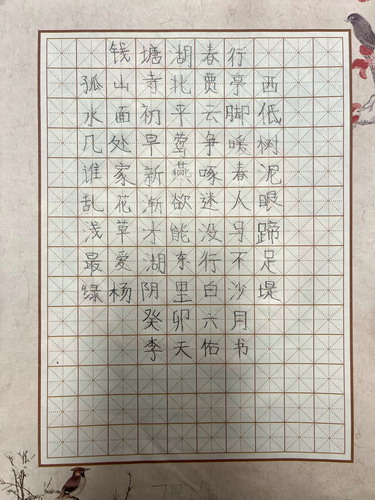 钱塘湖春行
孤山寺北贾亭西
水面初平云脚低
几处早莺争暖树
谁家新燕啄春泥
乱花渐欲迷人眼
浅草才能没马蹄
最爱湖东行不足
绿杨阴里白沙堤
癸卯六月
李天佑书